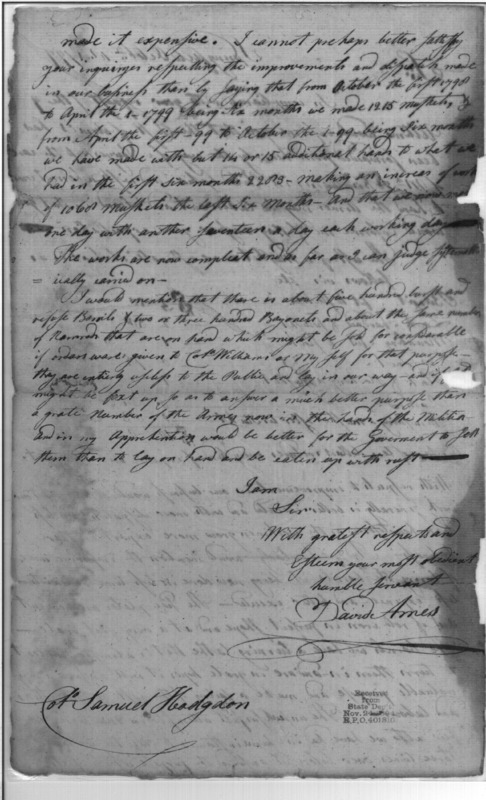 made it expensive. I cannot perhaps better sattisfy
your inquireys respecting the improvements and dispatch made
in our business than by saying that from October the first 1798
to April the 1- 1799 being six months we made 1215 muskets, &
from April the first -99 to October the 1-99- being six months
we have made with but 14 or 15 additional hands to what we
had in the first six months 2283- making an increas of work
of 1068 muskets the last six months- and that we now
one day with another seventeen a day each working day
The works are now compleat and as far as I can judge systemat
= ically carried on-
I would mention that there is about five hundred burst and
refuse Barrils & two or three hundred Bayonets and about the same number
of Ramrods that are on hand which might be Sold for
if orders ware given to Cor. Williams or My self for that purpose-
they are intirely useless to the Publick and lay in our way- and if
might be fixt up, so as to answer a much better purpose than
a grate Number of the Armes now in the hands of the Militia-
and in my Apprehention would be better for the Goverment to Sell
them than to lay on hand and be eaten up with rust
I am
Sir-
With gratest respect and
Esteem your most obedient
humble servant
David Ames
Cor. Samuel Hodgdon
Receives
from
State Dept.
Nov. 2
R.P.O. 401860.